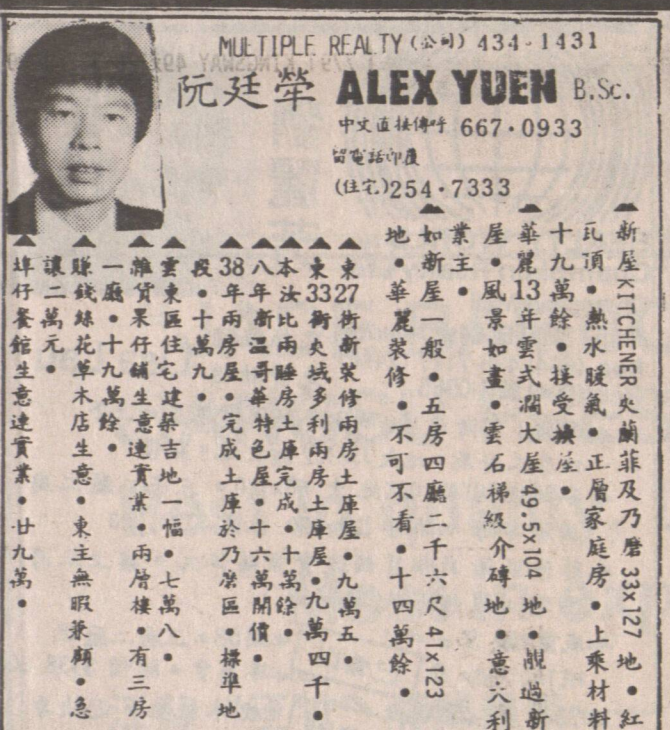 MULTIPLE REALTY (公司) 434-1431
阮廷犖 ALEX YUEN B.Sc.
中文直接傳呼 667·0933
留電話即覆
(住宅)254·7333
▲新屋KITCHENER夾蘭菲及乃磨33x127地●紅
瓦頂●熱水暖氣●正層家庭房●上乘材料
十九萬餘●接受換屋●
▲華麗13年雲式濶大屋49.5x104地●靚過新
屋●風景如畫●雲石梯級介磚地●意大利
業主●
▲如新屋一般●五房四廳二千六尺41x123
地●華麗裝修●不可不看●十四萬餘●
▲東27街新裝修兩房土庫屋●九萬五●
▲東33街夾域多利兩房土庫屋●九萬四千●
▲本汝比兩睡房土庫完成●十萬餘●
▲八年新溫哥華特色屋●十六萬開價●
▲38年兩房屋●完成土庫於乃磨區●標準地
段●十萬九●
▲雲東區住宅建築吉地一幅●七萬八●
▲雜貨果仔舖生意連實業●兩層樓●有三房
一廳●十九萬餘●
▲賺錢絲花草木店生意●東主無暇兼顧●急
讓二萬元●
▲埠仔餐館生意連實業●廿九萬●